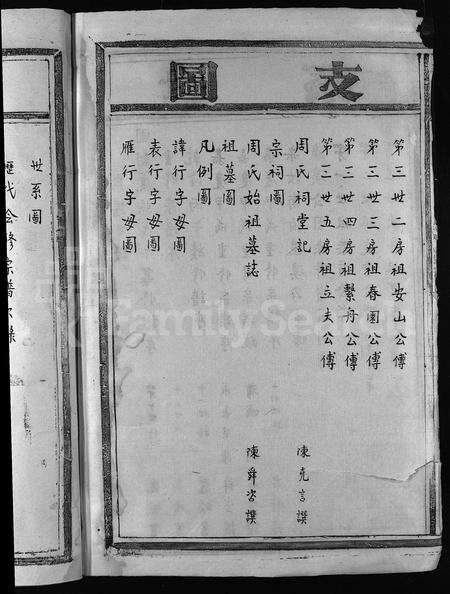 支圖
第三世二房祖安山公傳
第三世三房祖春園公傳
第三世四房祖繫舟公傳
第三世五房祖立夫公傳
周氏祠堂記 陳克言譔
宗祠圖
周氏始祖墓誌 陳舜咨譔
祖墓圖
凡例圖
諱行字母圖
表行字母圖
雁行字母圖
世系圖
歷代会修宗譜
FamilySearch